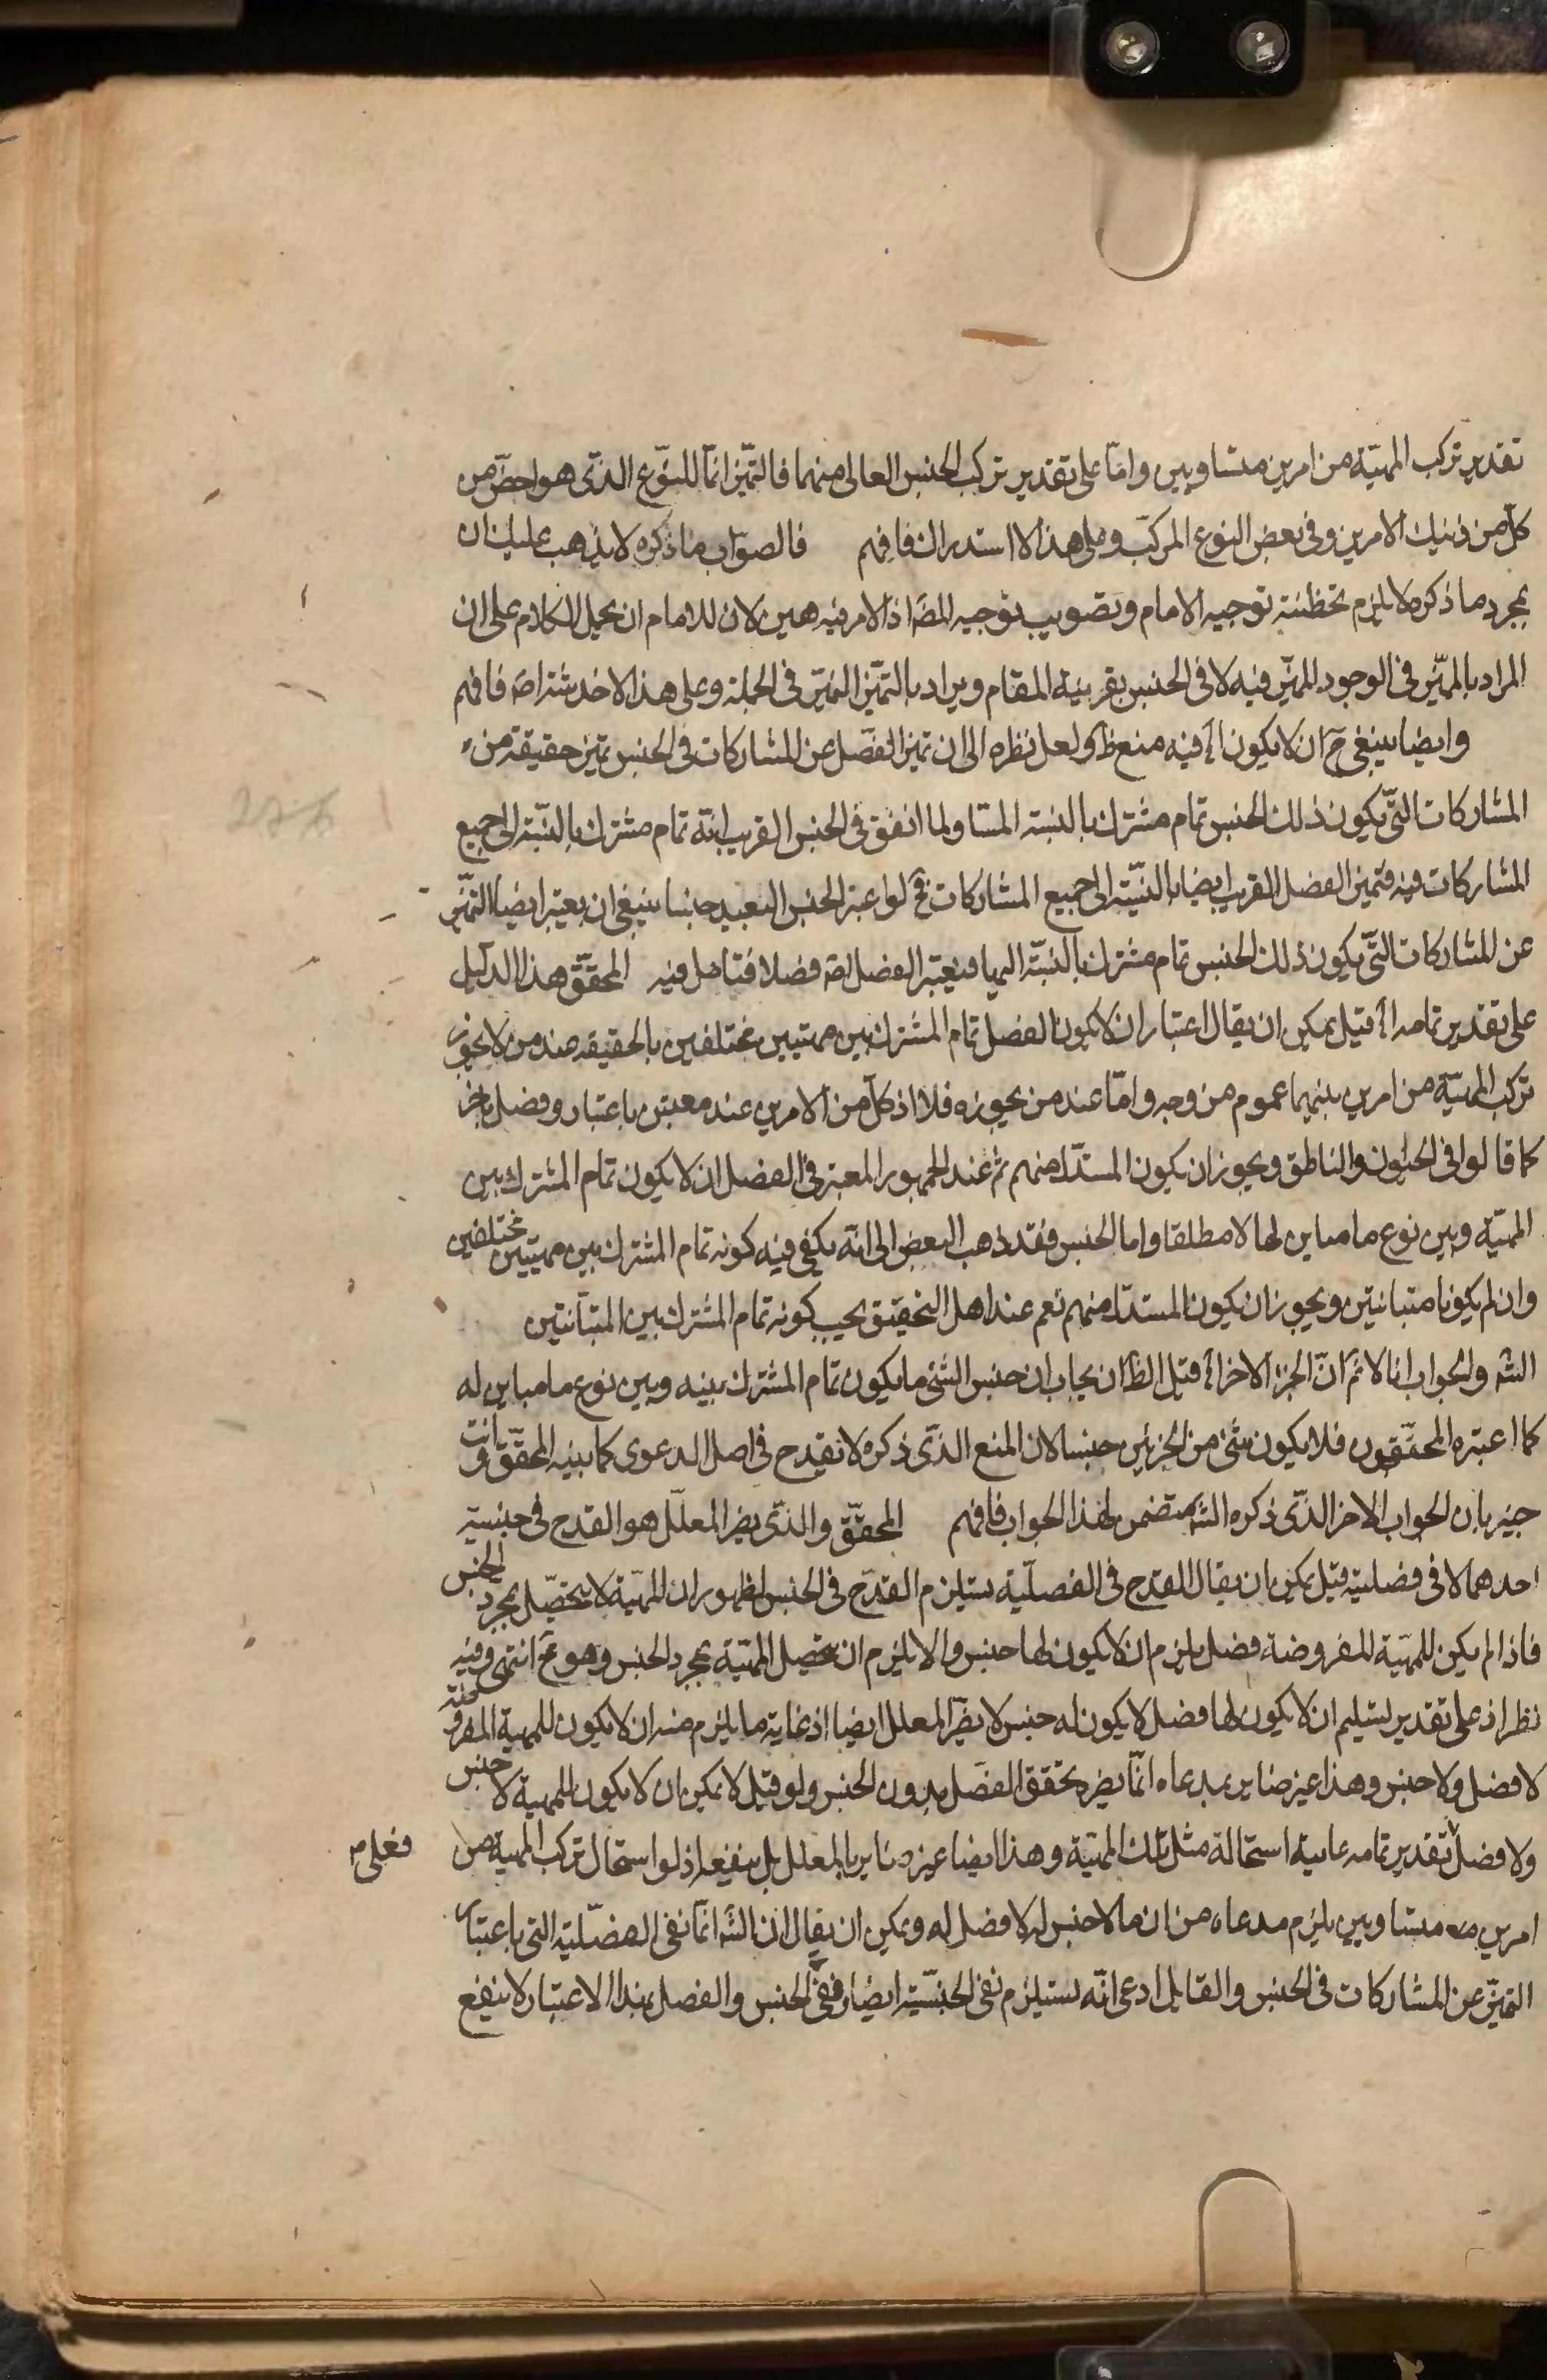 تقدير تركب المهيّة من امرين متساويين وامّا على تقدير تركب الجنس العالى منهما فالتميّز انمّا للنوّع الذىّ هو اخصّ من
كلّ من ذينك الامرين وفى بعض النوع المركبّ وعلى هذا لا استدراك فافهم فالصوّاب ما ذكره لا يذهب عليك ان
بمجرد ما ذكره لا يلزم تخطئته توجيه الامام وتصويب توجيه المصّ اذ الامر فيه هين لان للامام ان يحمل الكلام على ان
المراد بالمميّز فى الوجود المميّز فيه لا فى الجنس بقرينة المقام ويراد بالتميّز التميّز فى الجملة وعلى هذا لا خدشة اصّ فافهم
وايضا ينبغى حّ ان لا يكون الّخ فيه منع ظّ ولعل نظره الى ان تميز الفصل عن المشاركات فى الجنس تميز حقيقة من
المشاركات التىّ يكون ذلك الجنس تمام مشترك بالنسبة اليها ولما اتفق فى الجنس القريب انّه تمام مشترك بالنسّبة الى جميع
المشاركات فيه فتميز الفصل القريب ايضا بالنسّبة الى جميع المشاركات فحّ لو اعتبر الجنس البعيد جنسا ينبغى ان يعتبر ايضا التميّز
عن المشاركات التىّ يكون ذلك الجنس تمام مشترك بالنسبّة اليها فيعتبر الفصل لصّه فصلا فتامل فيه المحققّ هذا الدليل
على تقدير تمامه الّخ قيل يمكن ان يقال اعتبار ان لا يكون الفصل تمام المشترك بين مهيتين مختلفين بالحقيقه عند من لا يجوز
تركب المهيّة من امرين بينهما عموم من وجه وامّا عند من يجوزه فلا اذ كلّ من الامرين عنده جنس باعتبار وفصل باخر
كما قالوا فى الحيوان والناطق ويجوز ان يكون المستدّل منهم ثم عند الجمهور المعتبر فى الفصل ان لا يكون تمام المشترك بين
المهيّة وبين نوع ما مباين لها لا مطلقا واما الجنس فقد ذهب البعض الى انّه يكفى فيه كونه تمام المشترك بين مهيتين مختلفين
وان لم يكونا متباينتين ويجوز ان يكون المستدّل منهم نعم عند اهل التحقيق يجب كونه تمام المشترك بين المتباينتين
الشّه والجواب انا لا نمّ انّ الجزء الاخر الّخ قيل الظّ ان يجاب ان جنس الشئ ما يكون تمام المشترك بينه وبين نوع ما مباين له
كما اعتبره المحققّون فلا يكون شئ من الجزئين جنسا لان المنع الذّى ذكره لا يقدح فى اصل الدعوى كما بينه المحققّ وانت
خبير بان الجواب الاخر الذّى ذكره الشّه متضمن لهذا الجواب فافهم المحققّ والذّى يضر المعلّل هو القدح فى جنسية
احدهما لا فى فصليته قيل يمكن ان يقال القدح فى الفصلّية يستلزم القدح فى الجنس لظهور ان المهيّة لا يتحصّل بمجرد الجنس
فاذا لم يكن للمهيّة المفروضة فصل يلزم ان لا يكون لها جنس والا يلزم ان يتحصل المهيّة بمجرد الجنس وهو مّح انتهى وفيه
نظر اذ على تقدير تسليم ان لا يكون لها فصل لا يكون له جنس لا يضرّ المعلل ايضا اذ غاية ما يلزم منه ان لا يكون للمهية المفروضة
لا فصل ولا جنس وهذا غير ضاير بمدعاه انمّا يضره تحقق الفصل بدون الجنس ولو قيل لا يمكن ان لا يكون للمهية لا جنس
ولا فصل فعلى تقدير تمامه غايتة استحالة مثل تلك المهيّة وهذا ايضا غير ضاير بالمعلل بل ينفعه اذ لو استحال تركب المهية من
امرين متساويين يلزم مدعاه من ان ما لا جنس له لا فصل له ويمكن ان يقال ان الشّه انمّا نفى الفصلّية التى باعتبار
التميّز عن المشاركات فى الجنس والقايل ادعى انّه يستلزم نفى الجنسيّة ايضا ففى الجنس والفصل بهذا الاعتبار لا ينفع